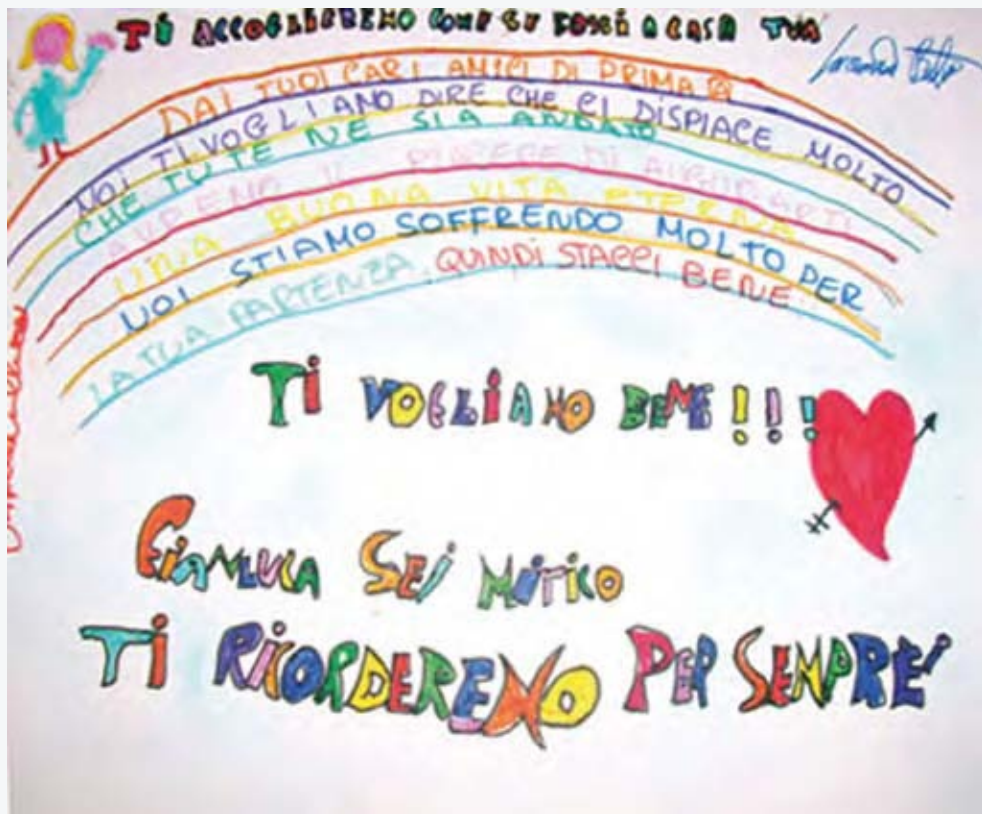 TI ACCOGLIEREMO COME SE FOSSI A CASA TUA
DAI TUOI CARI AMICI DI PRIMA
NOI TI VOGLIAMO DIRE CHE CI DISPIACE MOLTO
CHE TU TE NE SIA ANDATO
AVREMO IL PIACERE DI AUGURARTI
UNA BUONA VITA ETERNA
NOI STIAMO SOFFRENDO MOLTO PER
LA TUA PARTENZA, QUINDI STACCI BENE
TI VOGLIAMO BENE!!!
GIANLUCA SEI MITICO
TI RICORDEREMO PER SEMPRE!